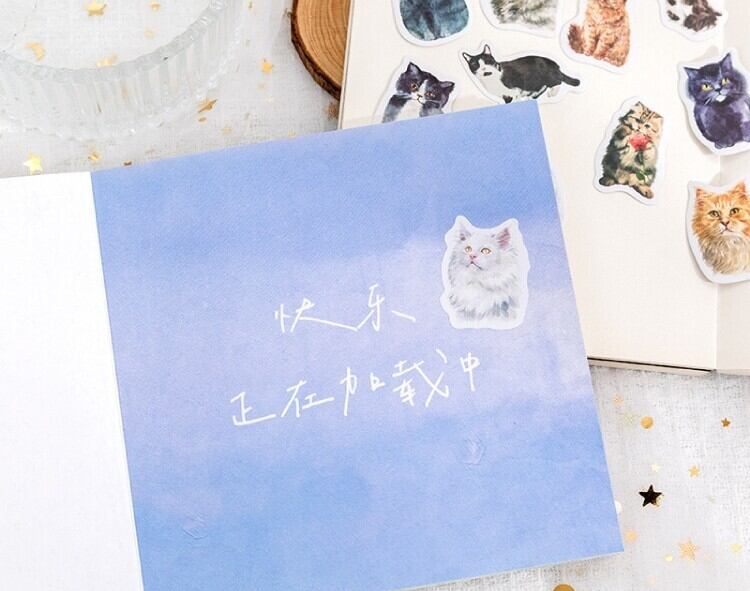 快乐
正在加载中